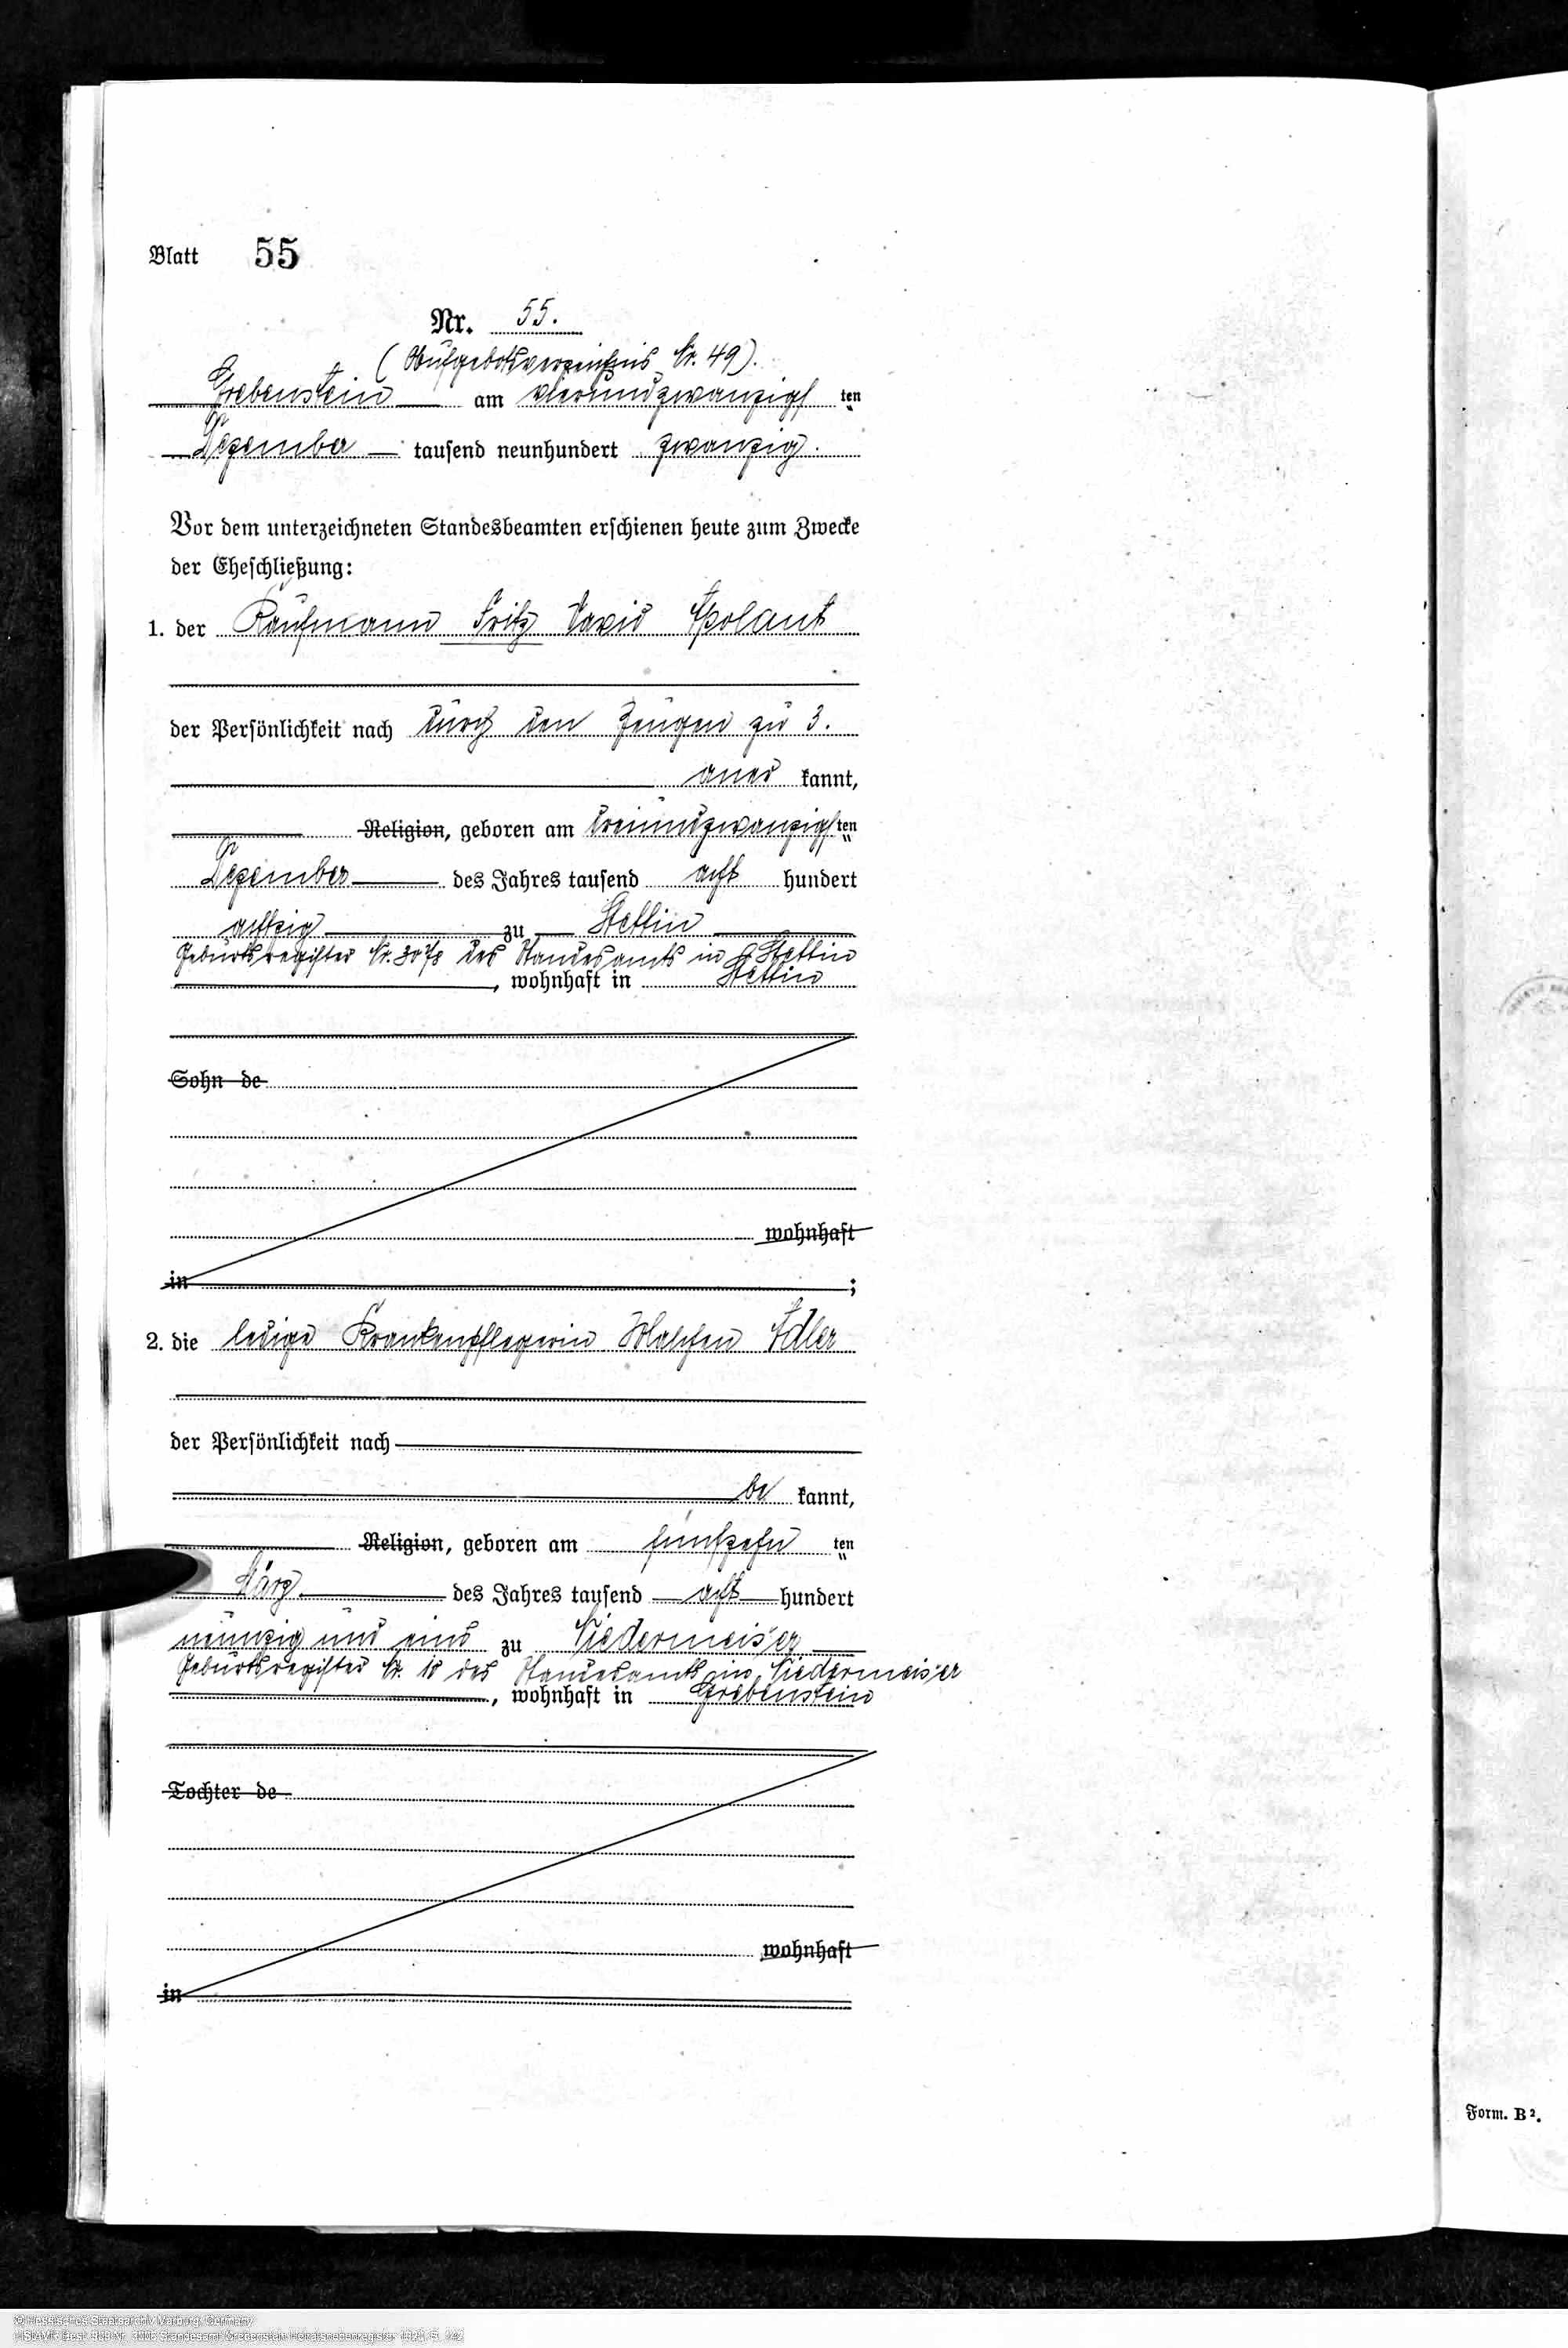 Blatt 55
Nr. 55.
(Aufgebotsverzeichnis Nr. 49).
Grebenstein am vierundzwanzigsten
Dezember tausend neunhundert zwanzig.
Vor dem unterzeichneten Standesbeamten erschienen heute zum Zwecke
der Eheschließung:
1. der Kaufmann Fritz David Apolant
der Persönlichkeit nach durch den Zeugen zu 3.
aner kannt,
Religion, geboren am dreiundzwanzigsten
Dezember des Jahres tausend acht hundert
achtzig zu Stettin
Geburtsregister Nr. des Standesamts in Stettin
, wohnhaft in Stettin
Sohn de
wohnhaft
in ;
2. die ledige Krankenpflegerin Malchen Adler
der Persönlichkeit nach
be kannt,
Religion, geboren am fünfzehn ten
März des Jahres tausend acht hundert
neunzig und eins zu Niedermeiser
Geburtsregister Nr. 18 des Standesamts in Niedermeiser
, wohnhaft in Grebenstein
Tochter de
wohnhaft
in
Form. B².